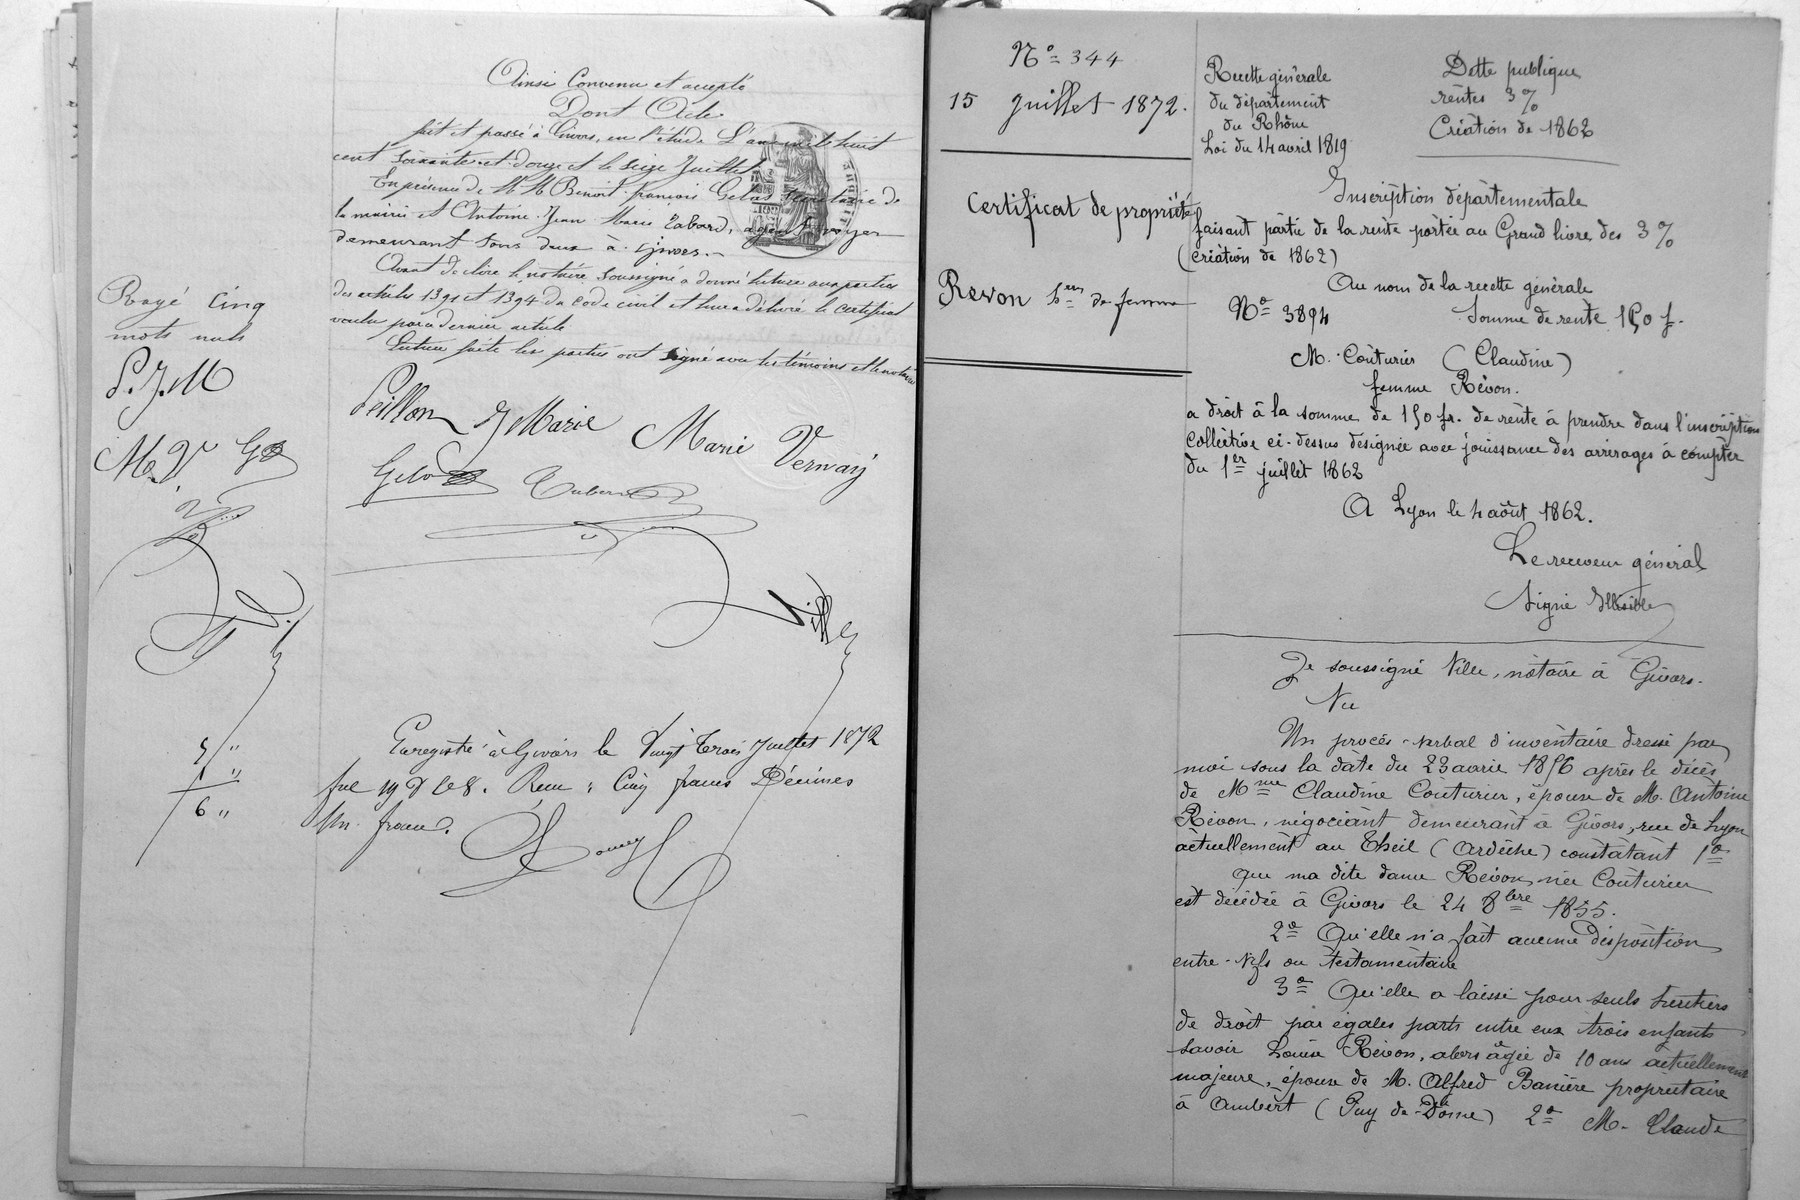 Ainsi Convenu et accepté
Dont Acte
fait et passé à Givors, en l'étude L'an mil huit
cent soixante-et-douze et le seize Juillet
En présence de M. M Benoit-françois secrétaire de
la mairie et Antoine-Jean Marie Tabard, agent voyer
demeurant tous deux à Givors.
Avant de clore le notaire soussigné a donné lecture aux parties
des articles 1391 et 1394 du Code civil et leur a délivré le certificat
voulu par ce dernier article
Lecture faite les parties ont signé avec les témoins et le notaire
Rayé cinq
mots nuls
P. J. M
M. V
Peillon J Marie Marie Vernay
Ville
5 "
1 "
6 "
Enregistré à Givors le Vingt trois Juillet 1872
fol 19 Reçu : Cinq francs Décimes
Un franc.
N° 344
15 Juillet 1872.
Certificat de propriété
Revon de femme
Recette générale
du département
du Rhône
Loi du 14 avril 1819
Dette publique
rentes 3 %
Création de 1862
Inscription départementale
faisant partie de la rente portée au Grand livre des 3 %
(création de 1862)
Au nom de la recette générale
N° 3894 Somme de rente 150 f.
M. Couturier (Claudine)
femme Révon.
a droit à la somme de 150 fr. de rente à prendre dans l'inscription
collective ci-dessus désignée avec jouissance des arrérages à compter
du 1er juillet 1862
A Lyon le 4 août 1862.
Le receveur général
Signé Illisible
Je soussigné Ville, notaire à Givors.
Vu
Un procès-verbal d'inventaire dressé par
moi sous la date du 23 avril 1856 après le décès
de Mme Claudine Couturier, épouse de M. Antoine
Révon, négociant demeurant à Givors, rue de Lyon
actuellement au Theil (Ardèche) constatant 1°
que ma dite dame Révon née Couturier
est décédée à Givors le 24 8bre 1855.
2° Qu'elle n'a fait aucune disposition
entre-vifs ou testamentaire
3° Qu'elle a laissé pour seuls héritiers
de droit par égales parts entre eux trois enfants
savoir Louise Révon, alors âgée de 10 ans actuellement
majeure, épouse de M. Alfred Banière propriétaire
à Ambert (Puy de-Dôme) 2° M. Claude